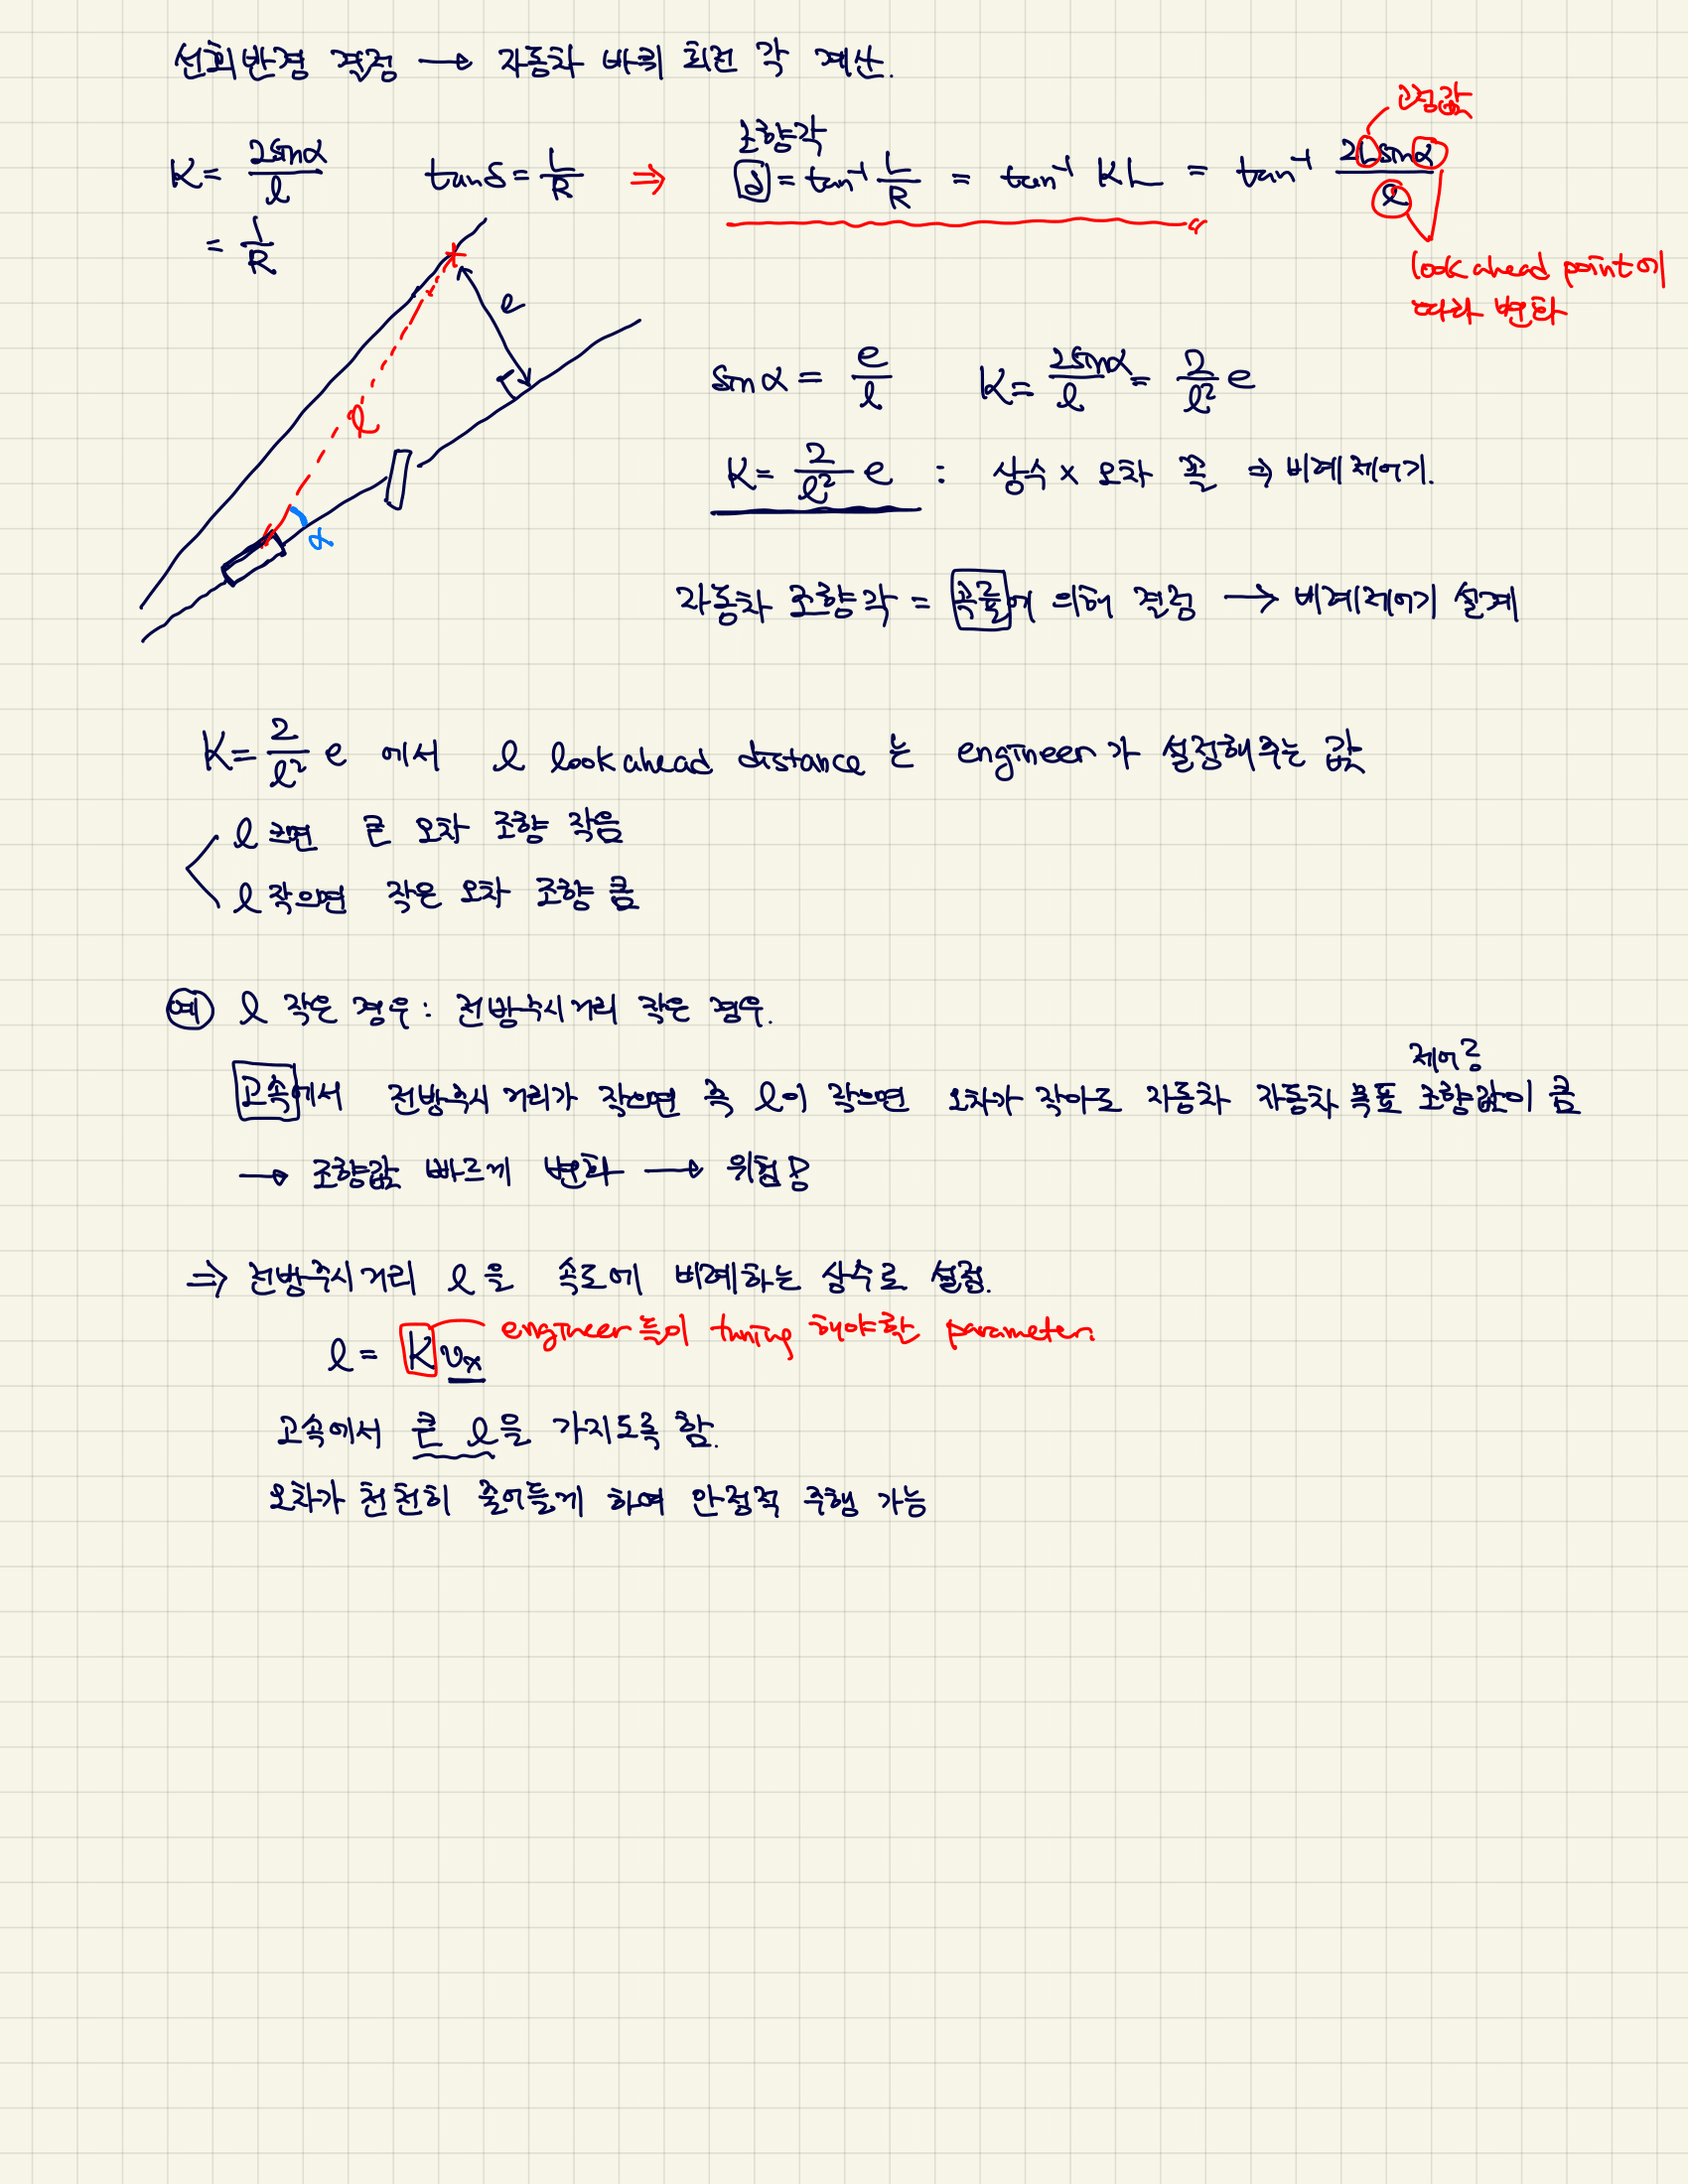 선회반경 결정 → 자동차 바퀴 회전 각 계산.
고정값
조향각
K = 2sinα/l   tanδ = L/R ⇒ δ = tan⁻¹ L/R = tan⁻¹ KL = tan⁻¹ 2Lsinα/l
= 1/R
look ahead point에
따라 변화
e
l
α
sinα = e/l   K = 2sinα/l = 2/l² e
K = 2/l² e : 상수 × 오차 꼴 ⇒ 비례제어기.
자동차 조향각 = 곡률에 의해 결정 → 비례제어기 설계
K = 2/l² e 에서 l look ahead distance 는 engineer가 설정해주는 값
l 크면 큰 오차 조향 작음
l 작으면 작은 오차 조향 큼
예 l 작은 경우 : 전방주시거리 작은 경우.
제어?
고속에서 전방주시 거리가 작으면 즉 l이 작으면 오차가 작아도 자동차 자동차 목표 조향값이 큼
→ 조향값 빠르게 변화 → 위험!
⇒ 전방주시거리 l을 속도에 비례하는 상수로 설정.
engineer들이 tuning 해야할 parameter.
l = K vx
고속에서 큰 l을 가지도록 함.
오차가 천천히 줄어들게 하여 안정적 주행 가능